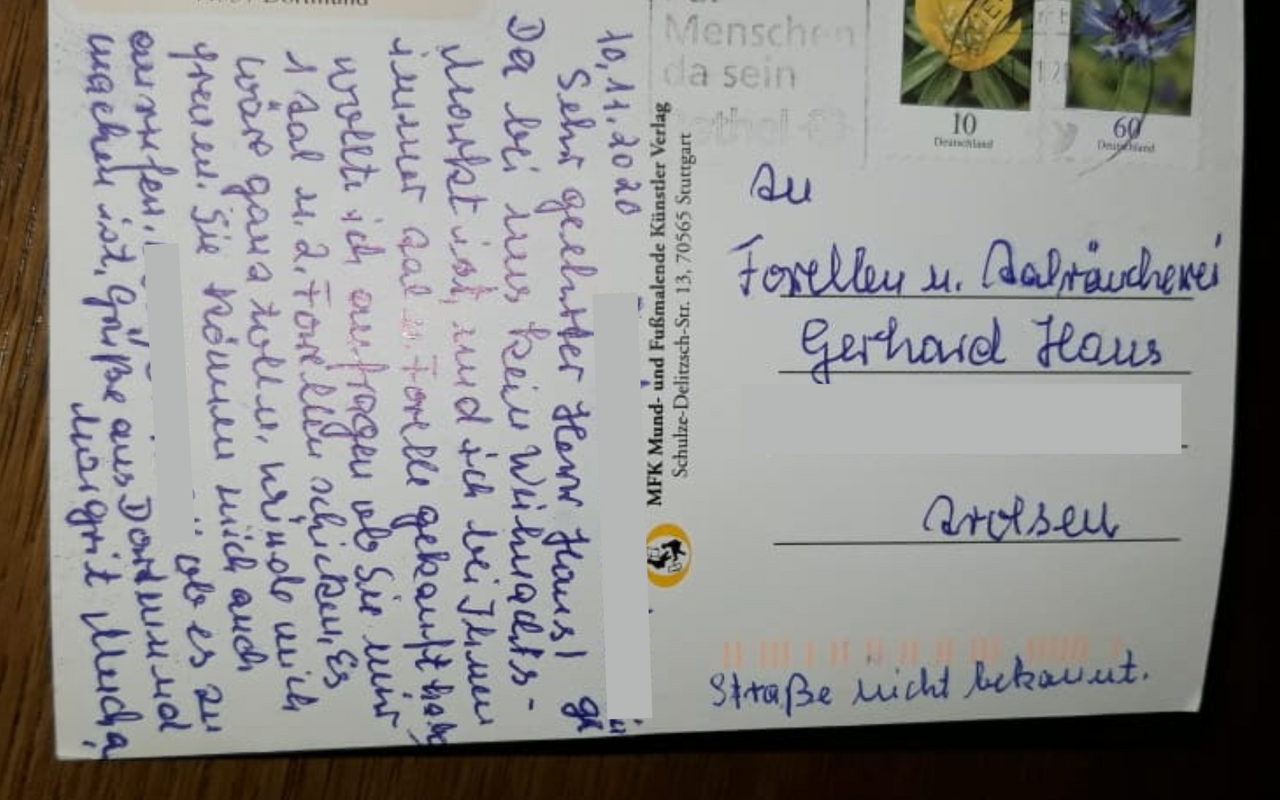 Dortmund
10.11.2020
Sehr geehrter Herr Haus!
Da bei uns kein Weihnachts-
Markt ist, und ich bei Ihnen
immer Aal u. Forelle gekauft habe
wollte ich anfragen ob Sie mir
1 Aal u. 2. Forellen schicken, Es
wäre ganz toll u. würde mich
freuen. Sie können mich auch
anrufen. ob es zu
machen ist, Grüße aus Dortmund
Margrit Mucha
MFK Mund- und Fußmalende Künstler Verlag
Schulze-Delitzsch-Str. 13, 70565 Stuttgart
Menschen
da sein
Bethel
10
Deutschland
60
Deutschland
An
Forellen u. Aalräucherei
Gerhard Haus
Arolsen
Straße nicht bekannt.